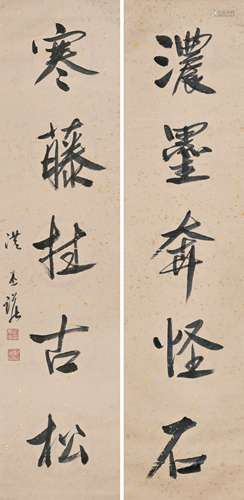 濃墨奔怪石
寒藤挂古松